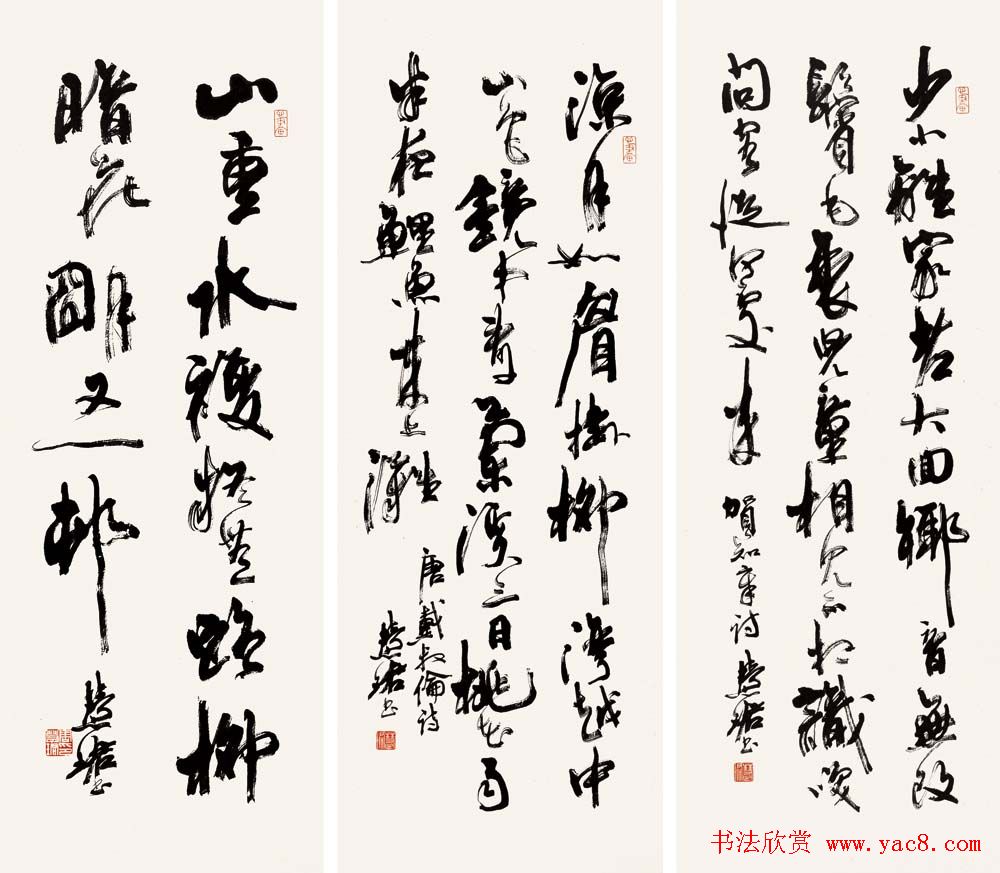 少小離家老大回鄉音無改
鬢毛衰兒童相見不相識咲
問客從何處來 賀知章詩 慧珺書
涼月如眉掛柳灣越中
山色鏡中看蘭溪三日桃花雨
半夜鯉魚來上灘
唐戴叔倫詩
慧珺書
山重水複疑無路柳
暗花朙又一村 慧珺書
书法欣赏 www.yac8.com